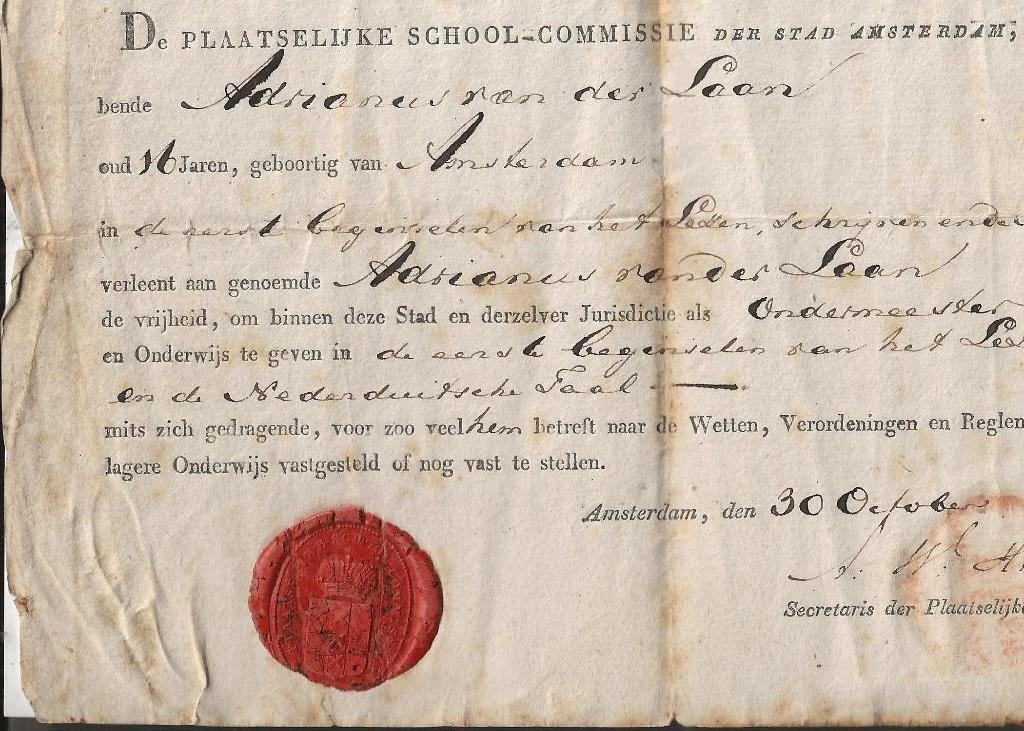 De PLAATSELIJKE SCHOOL-COMMISSIE DER STAD AMSTERDAM,
bende Adrianus van der Laan
oud 16 Jaren, geboortig van Amsterdam
in de eerste beginselen van het Lezen, schrijven en de
verleent aan genoemde Adrianus van der Laan
de vrijheid, om binnen deze Stad en derzelver Jurisdictie als Ondermeester
en Onderwijs te geven in de eerste beginselen van het Lez
en de Nederduitsche Taal
mits zich gedragende, voor zoo veel hem betreft naar de Wetten, Verordeningen en Reglem
lagere Onderwijs vastgesteld of nog vast te stellen.
Amsterdam, den 30 October
Secretaris der Plaatselijke